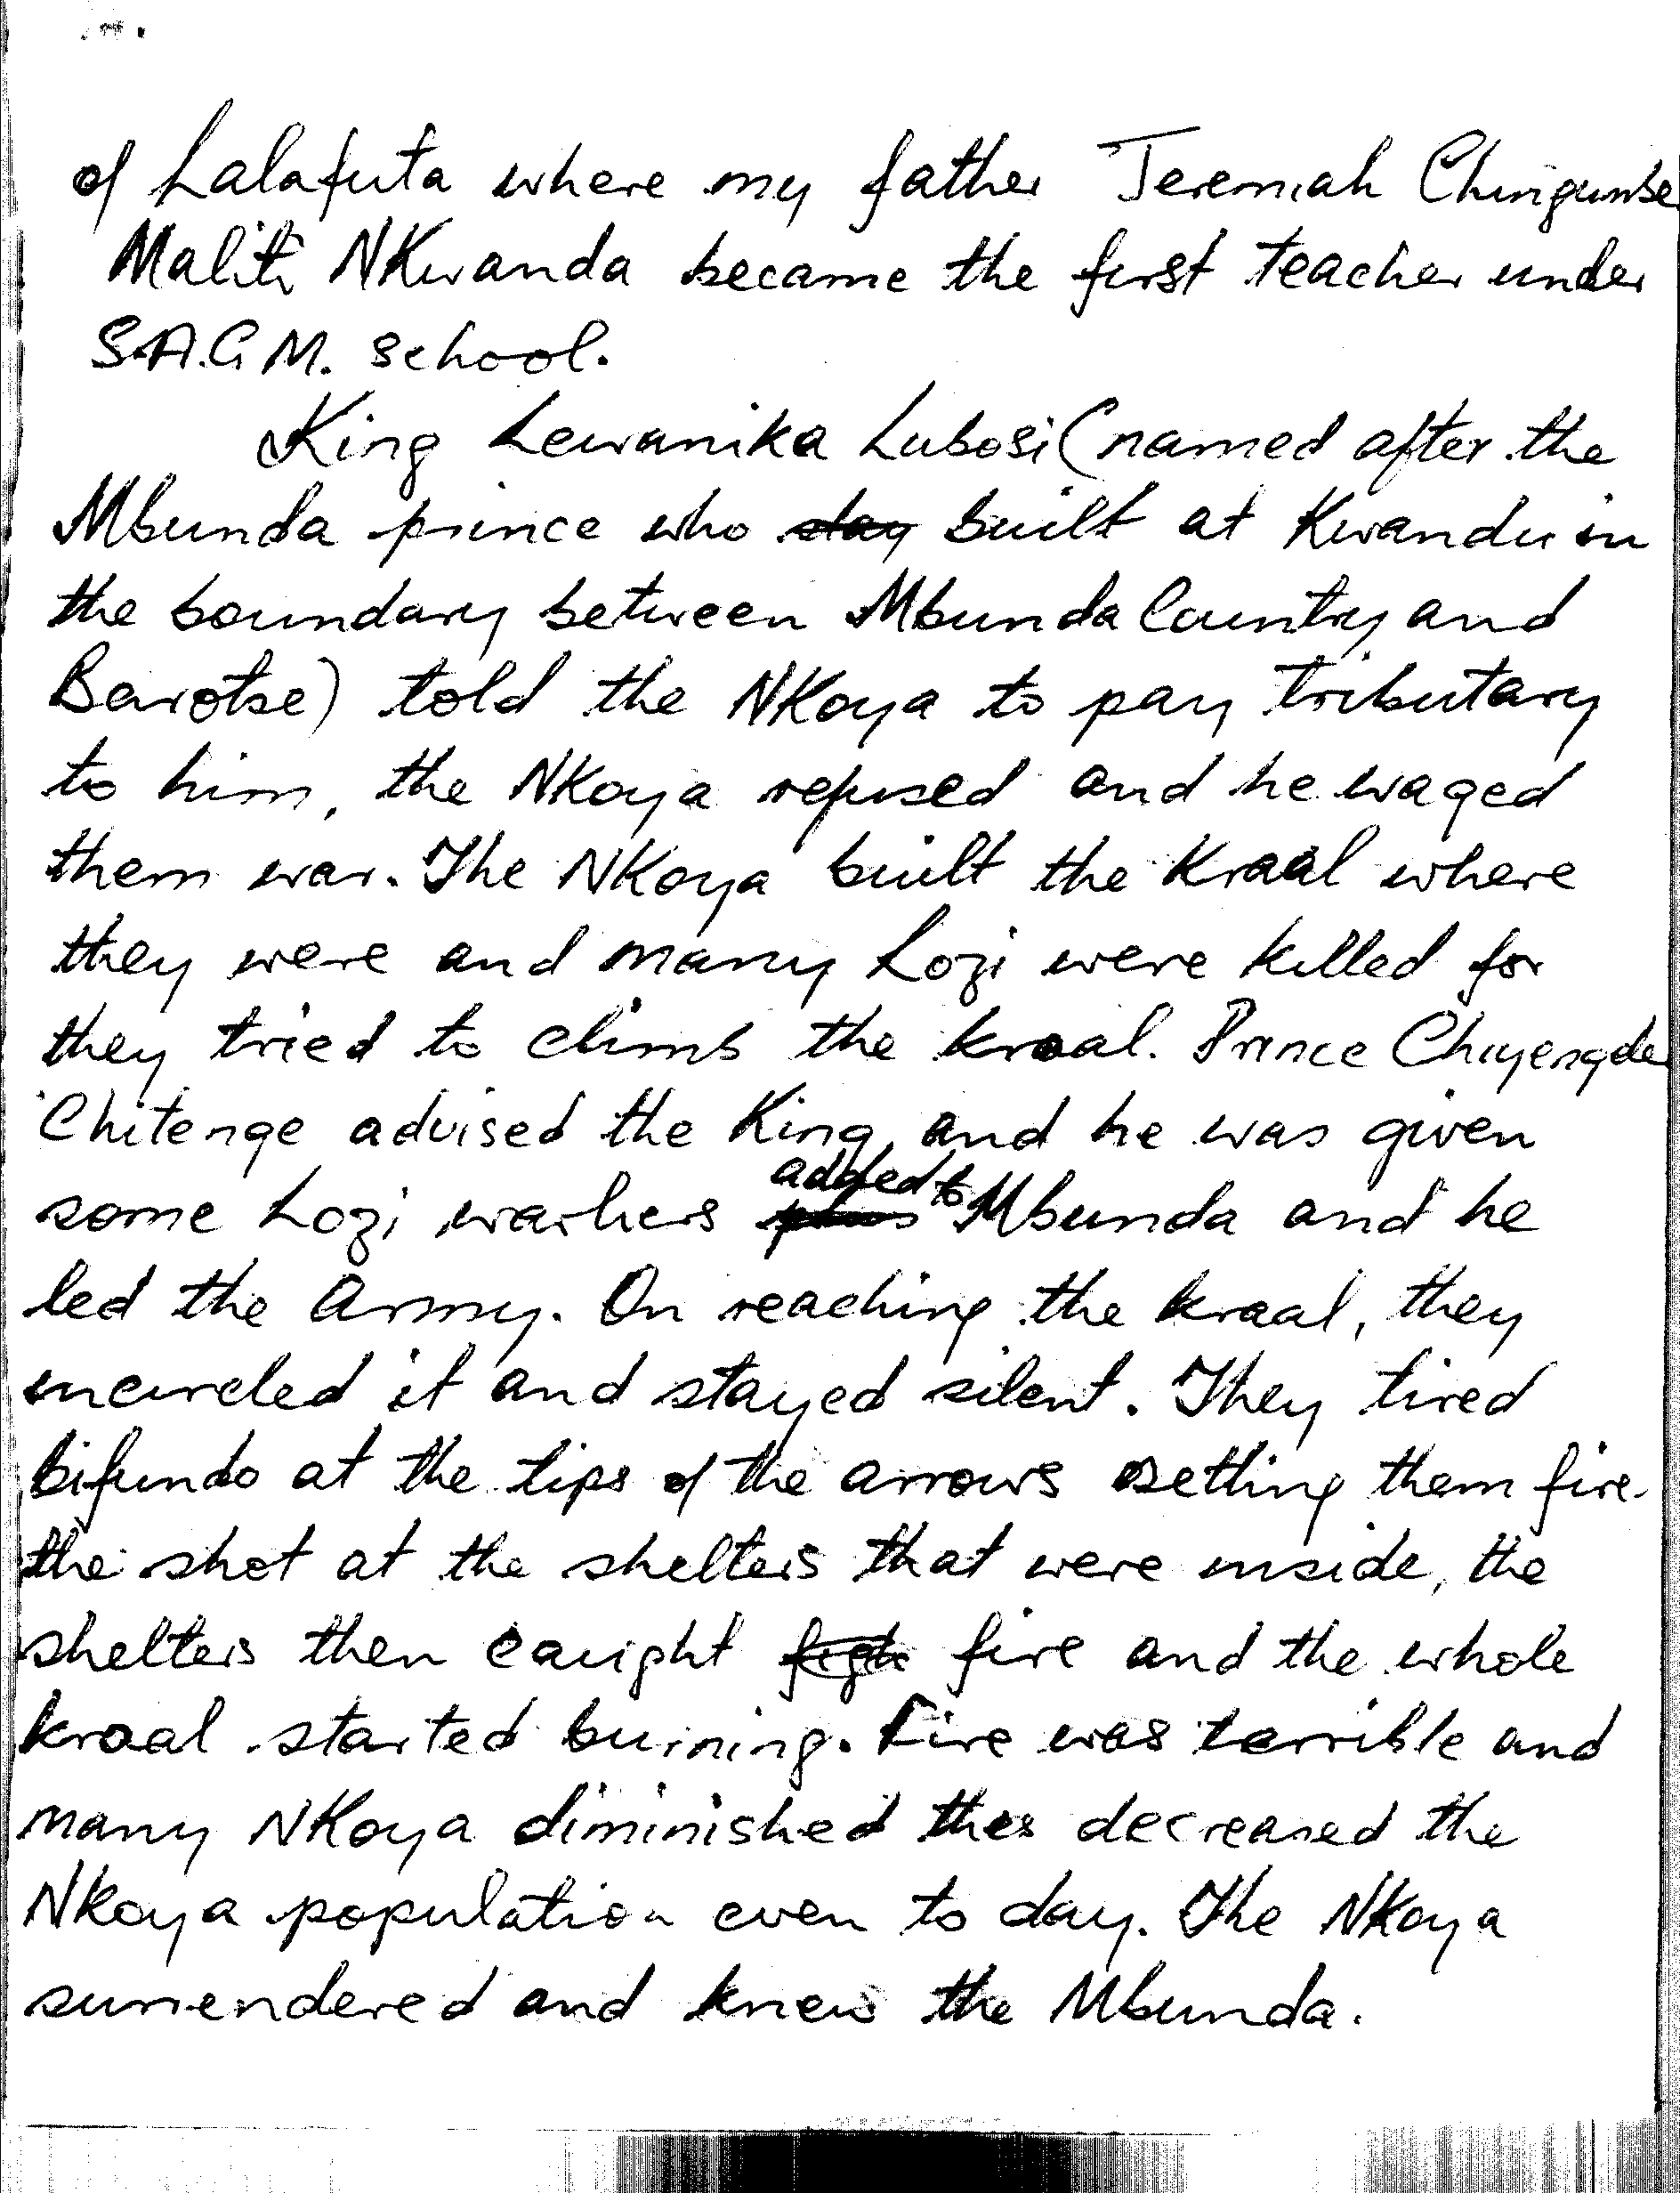 of Lalafuta where my father Jeremiah Chingumbe
Maliti NKwanda became the first teacher under
S.A.G M. school.
King Lewanika Lubosi (named after the
Mbunda prince who stay built at Kwandu in
the boundary between Mbunda Country and
Barotse) told the NKoya to pay tributary
to him, the NKoya refused and he waged
them war. The NKoya built the Kraal where
they were and many Lozi were killed for
they tried to climb the kraal. Prince Chiyengele
Chitenge advised the King, and he was given
some Lozi warhers added to Mbunda and he
led the Army. On reaching the kraal, they
encircled it and stayed silent. They tired
bifundo at the tips of the arrows setting them fire.
the shot at the shelters that were inside, the
shelters then caught figh fire and the whole
kraal started burning. Fire was terrible and
many NKoya diminished thes decreased the
NKoya population even to day. The NKoya
surrendered and knew the Mbunda.